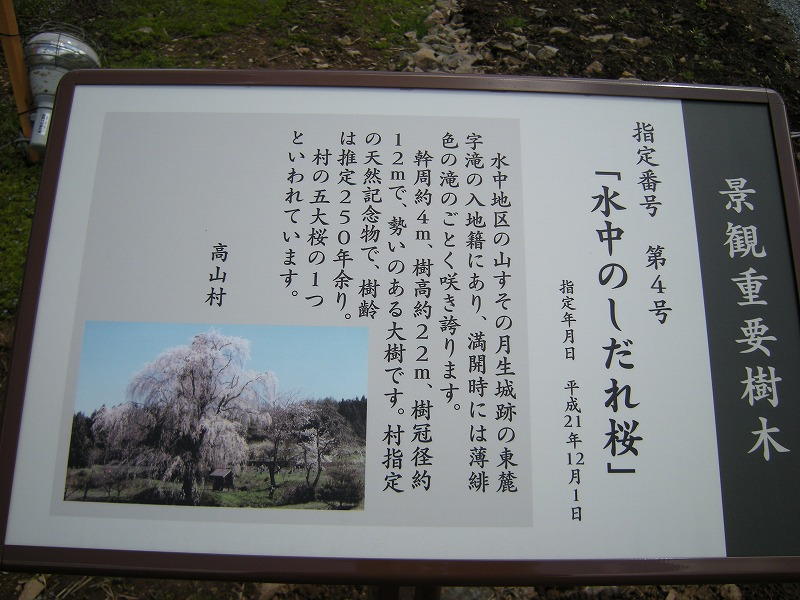 景観重要樹木
指定番号 第4号
「水中のしだれ桜」
指定年月日 平成21年12月1日
水中地区の山すその月生城跡の東麓
字滝の入地籍にあり、満開時には薄緋
色の滝のごとく咲き誇ります。
幹周約4m、樹高約22m、樹冠径約
12mで、勢いのある大樹です。村指定
の天然記念物で、樹齢
は推定250年余り。
村の五大桜の1つ
といわれています。
高山村